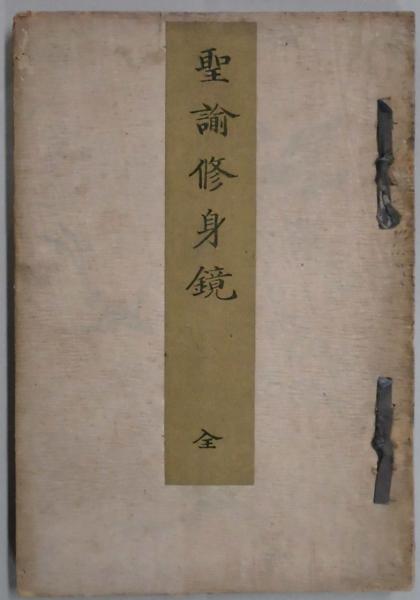 聖諭修身鏡
全